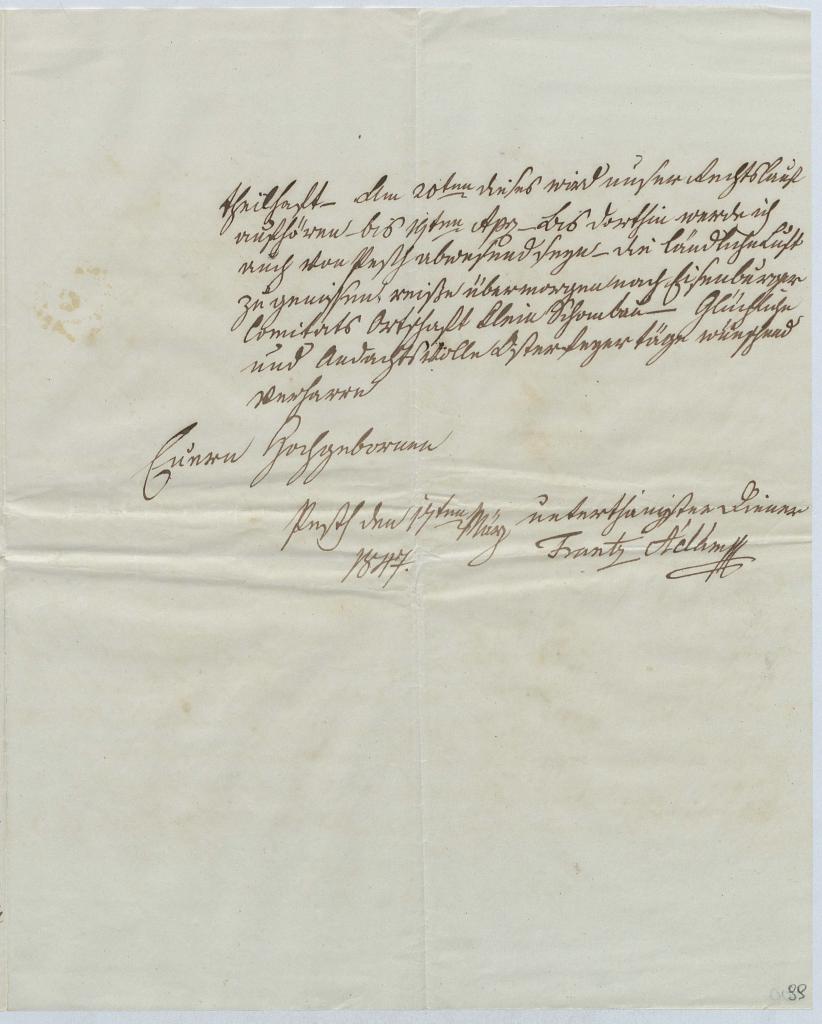 theilhaft – Am 20ten dieses wird unser Rechtslauf
aufhören – bis 19ten Apr – bis dorthin werde ich
auch von Pesth abwesend seyn – die ländliche Luft
zu genissen, reise übermorgen nach Eisenburger
Comitats Ortschaft Klein – Glückliche
und Andachtsvolle Osterfeyertäge wünschend
verharre
Euern Hochgebornen
Pesth den 17ten März unterthänigster Diener
1847. Frantz
99